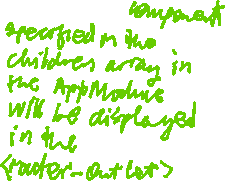 component
specified in the
children array in
the AppModule
will be displayed
in the
<router-outlet>